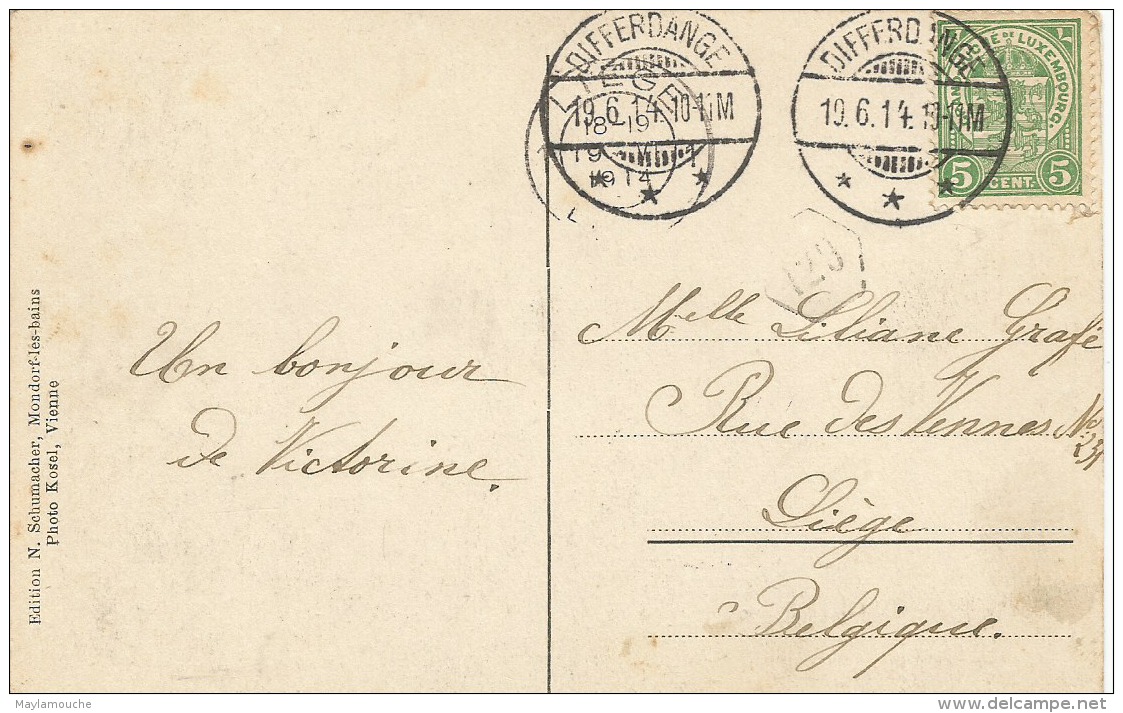 Edition N. Schumacher, Mondorf-les-bains
Photo Kosel, Vienne
Un bonjour
de Victorine.
DIFFERDANGE
19.6.14.10-11M
LIEGE
18-19
19 VI
1914
DIFFERDANGE
19.6.14.10-11M
DE LUXEMBOURG.
5 CENT. 5
120
Melle Liliane Grafé
Rue des Vennes No
Liège
Belgique.
Maylamouche
www.delcampe.net